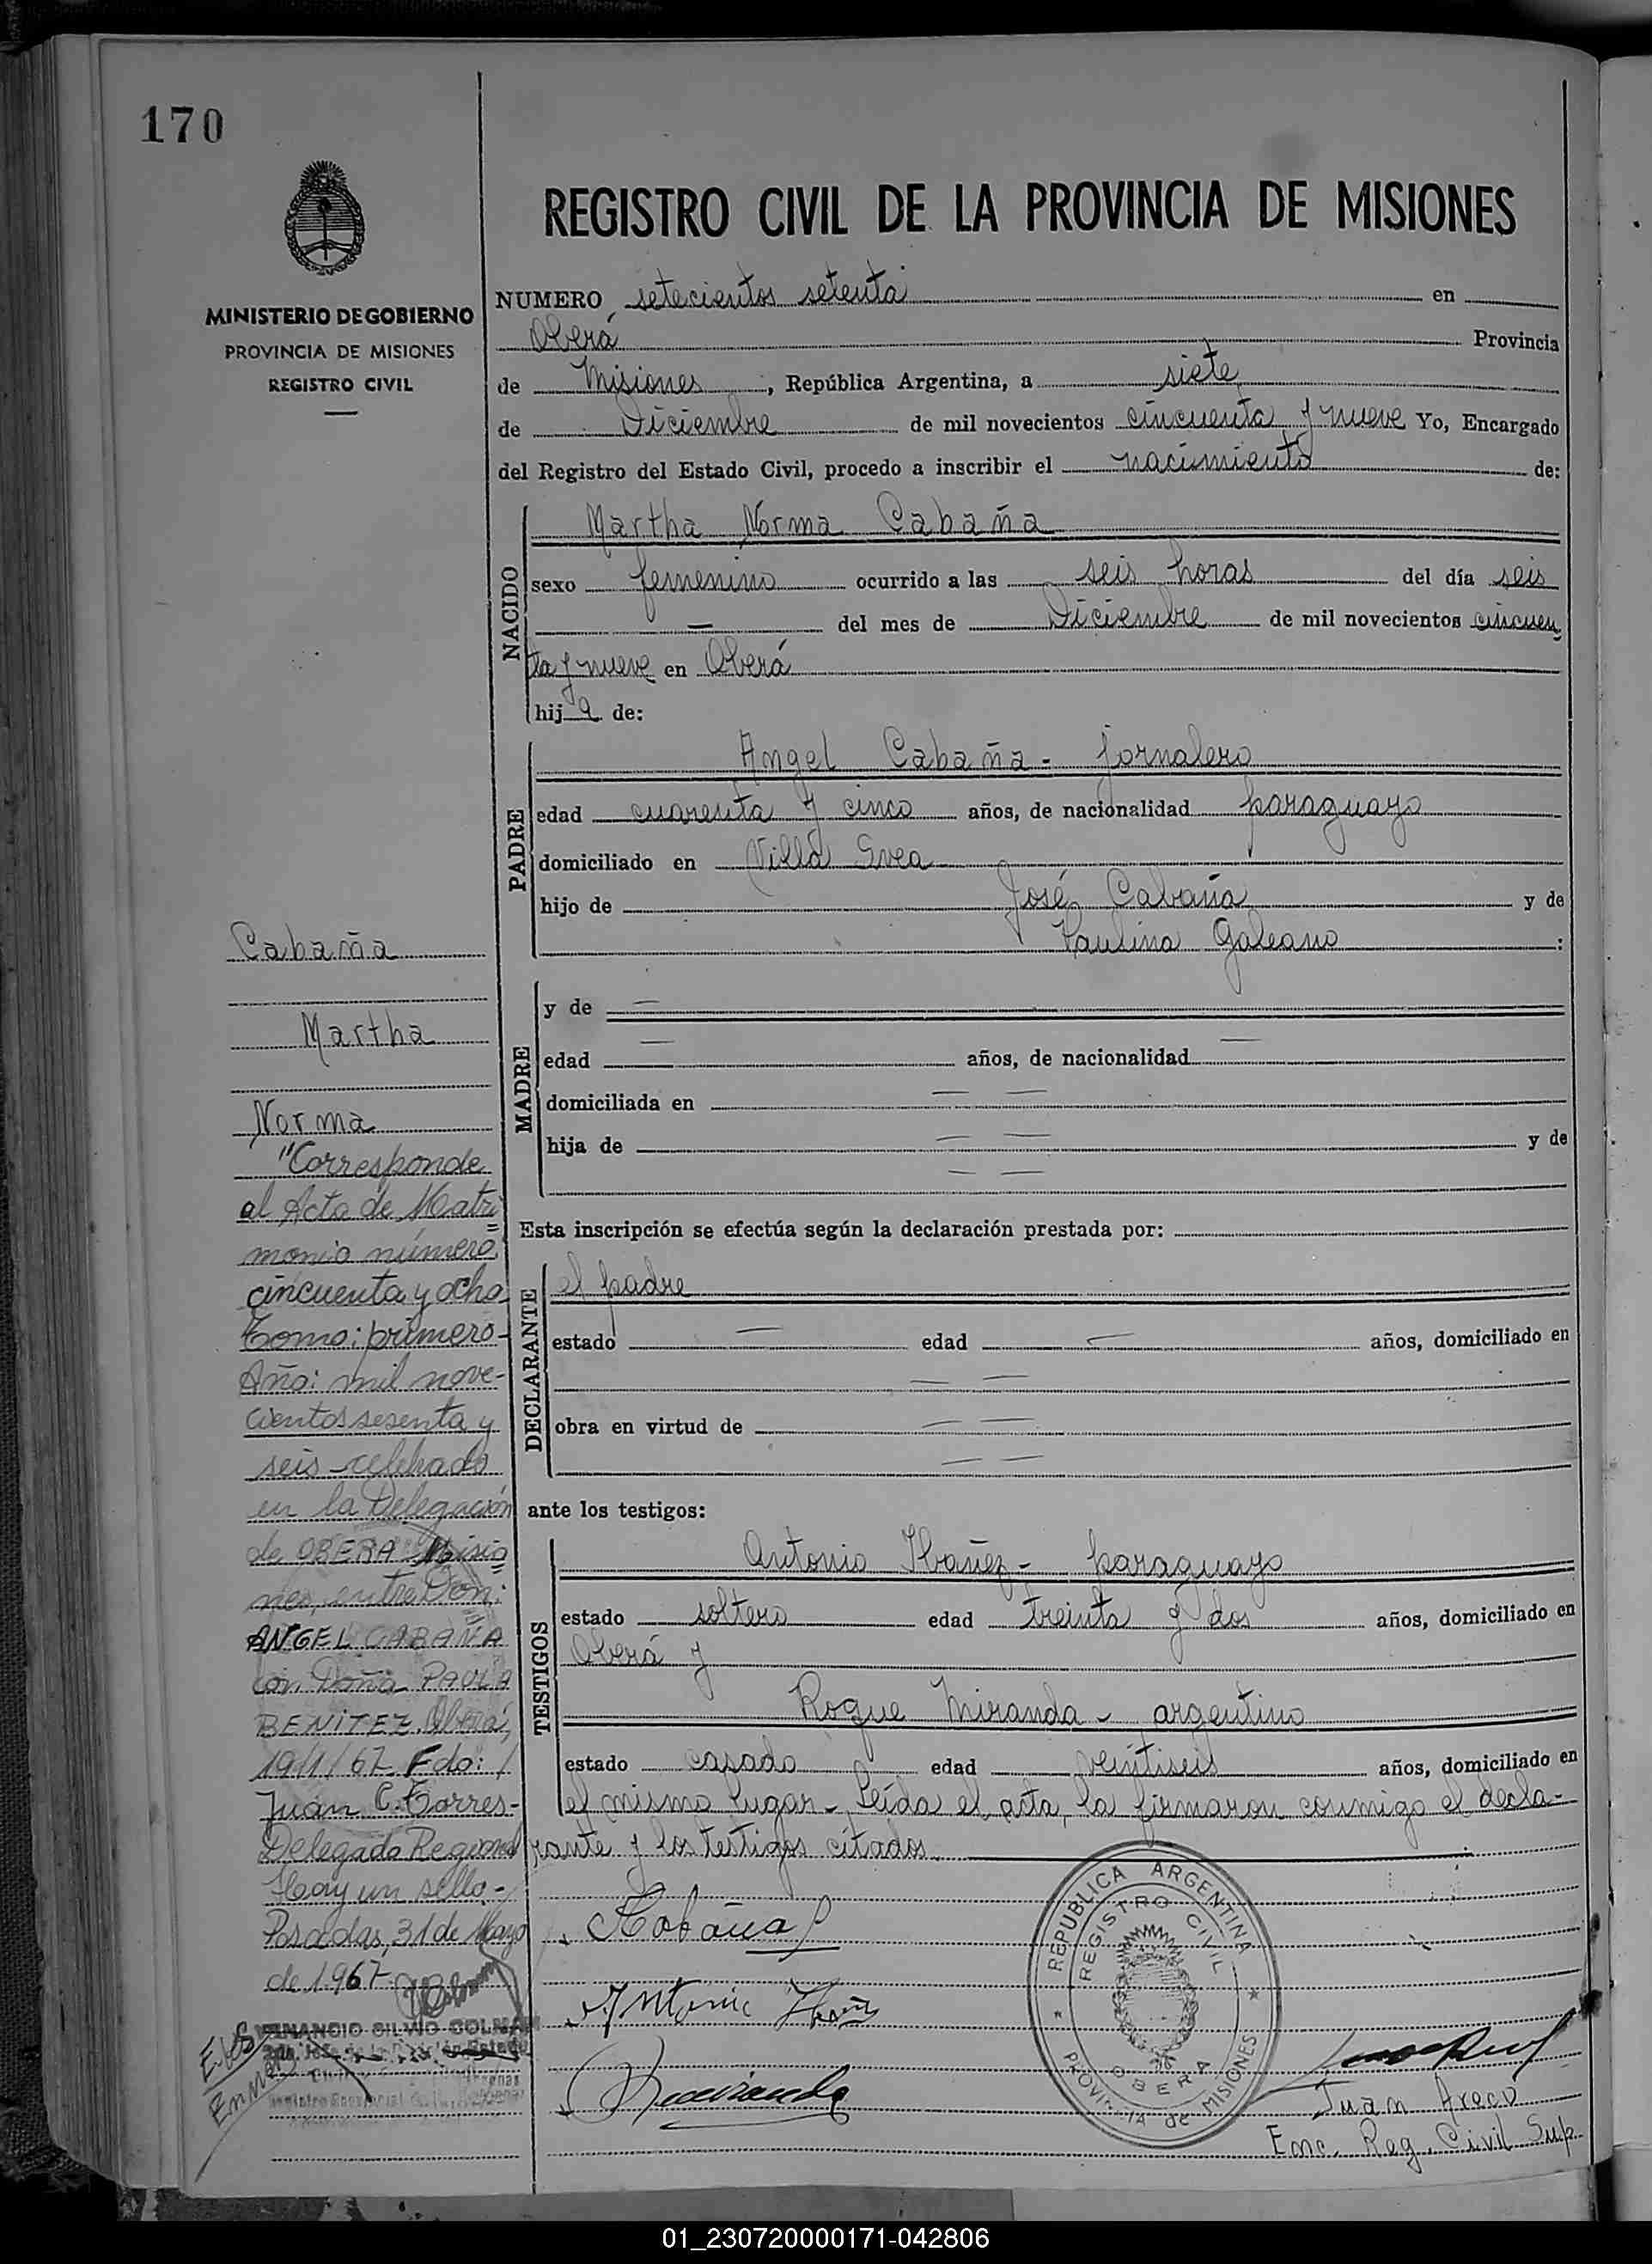 170
REGISTRO CIVIL DE LA PROVINCIA DE MISIONES
MINISTERIO DE GOBIERNO
PROVINCIA DE MISIONES
REGISTRO CIVIL
NUMERO setecientos setenta en
Oberá Provincia
de Misiones, República Argentina, a siete
de Diciembre de mil novecientos cincuenta y nueve Yo, Encargado
del Registro del Estado Civil, procedo a inscribir el nacimiento de:
NACIDO
Martha Norma Cabaña
sexo femenino ocurrido a las seis horas del día seis
— del mes de Diciembre de mil novecientos cincuen
ta y nueve en Oberá
hija de:
PADRE
Angel Cabaña - jornalero
edad cuarenta y cinco años, de nacionalidad paraguayo
domiciliado en Villa Svea
hijo de José Cabaña y de
Paulina Galeano :
MADRE
y de —
edad — años, de nacionalidad —
domiciliada en — —
hija de — — y de
— —
Esta inscripción se efectúa según la declaración prestada por:
DECLARANTE
el padre
estado — edad — años, domiciliado en
— —
obra en virtud de — —
— —
ante los testigos:
TESTIGOS
Antonio Ibañez - paraguayo
estado soltero edad treinta y dos años, domiciliado en
Oberá y
Roque Miranda - argentino
estado casado edad veintiseis años, domiciliado en
el mismo lugar - Leída el acta, la firmaron conmigo el decla-
rante y los testigos citados.
Cabaña
Antonio Ibañ
REPUBLICA ARGENTINA
REGISTRO CIVIL
OBERA
PROVINCIA de MISIONES
Juan Areco
Enc. Reg. Civil Sup.
Cabaña
Martha
Norma
"Corresponde
al Acta de Matri
monio número
cincuenta y ocho
Tomo: primero-
Año: mil nove-
cientos sesenta y
seis celebrado
en la Delegación
de OBERA Misio
nes, entre Don:
ANGEL CABAÑA
con Doña PAULA
BENITEZ. Oberá,
19/1/67. Fdo:
Juan C. Torres-
Delegado Regional
Hay un sello.-
Posadas, 31 de Mayo
de 1967
VENANCIO SILVIO COLMAN
01_230720000171-042806